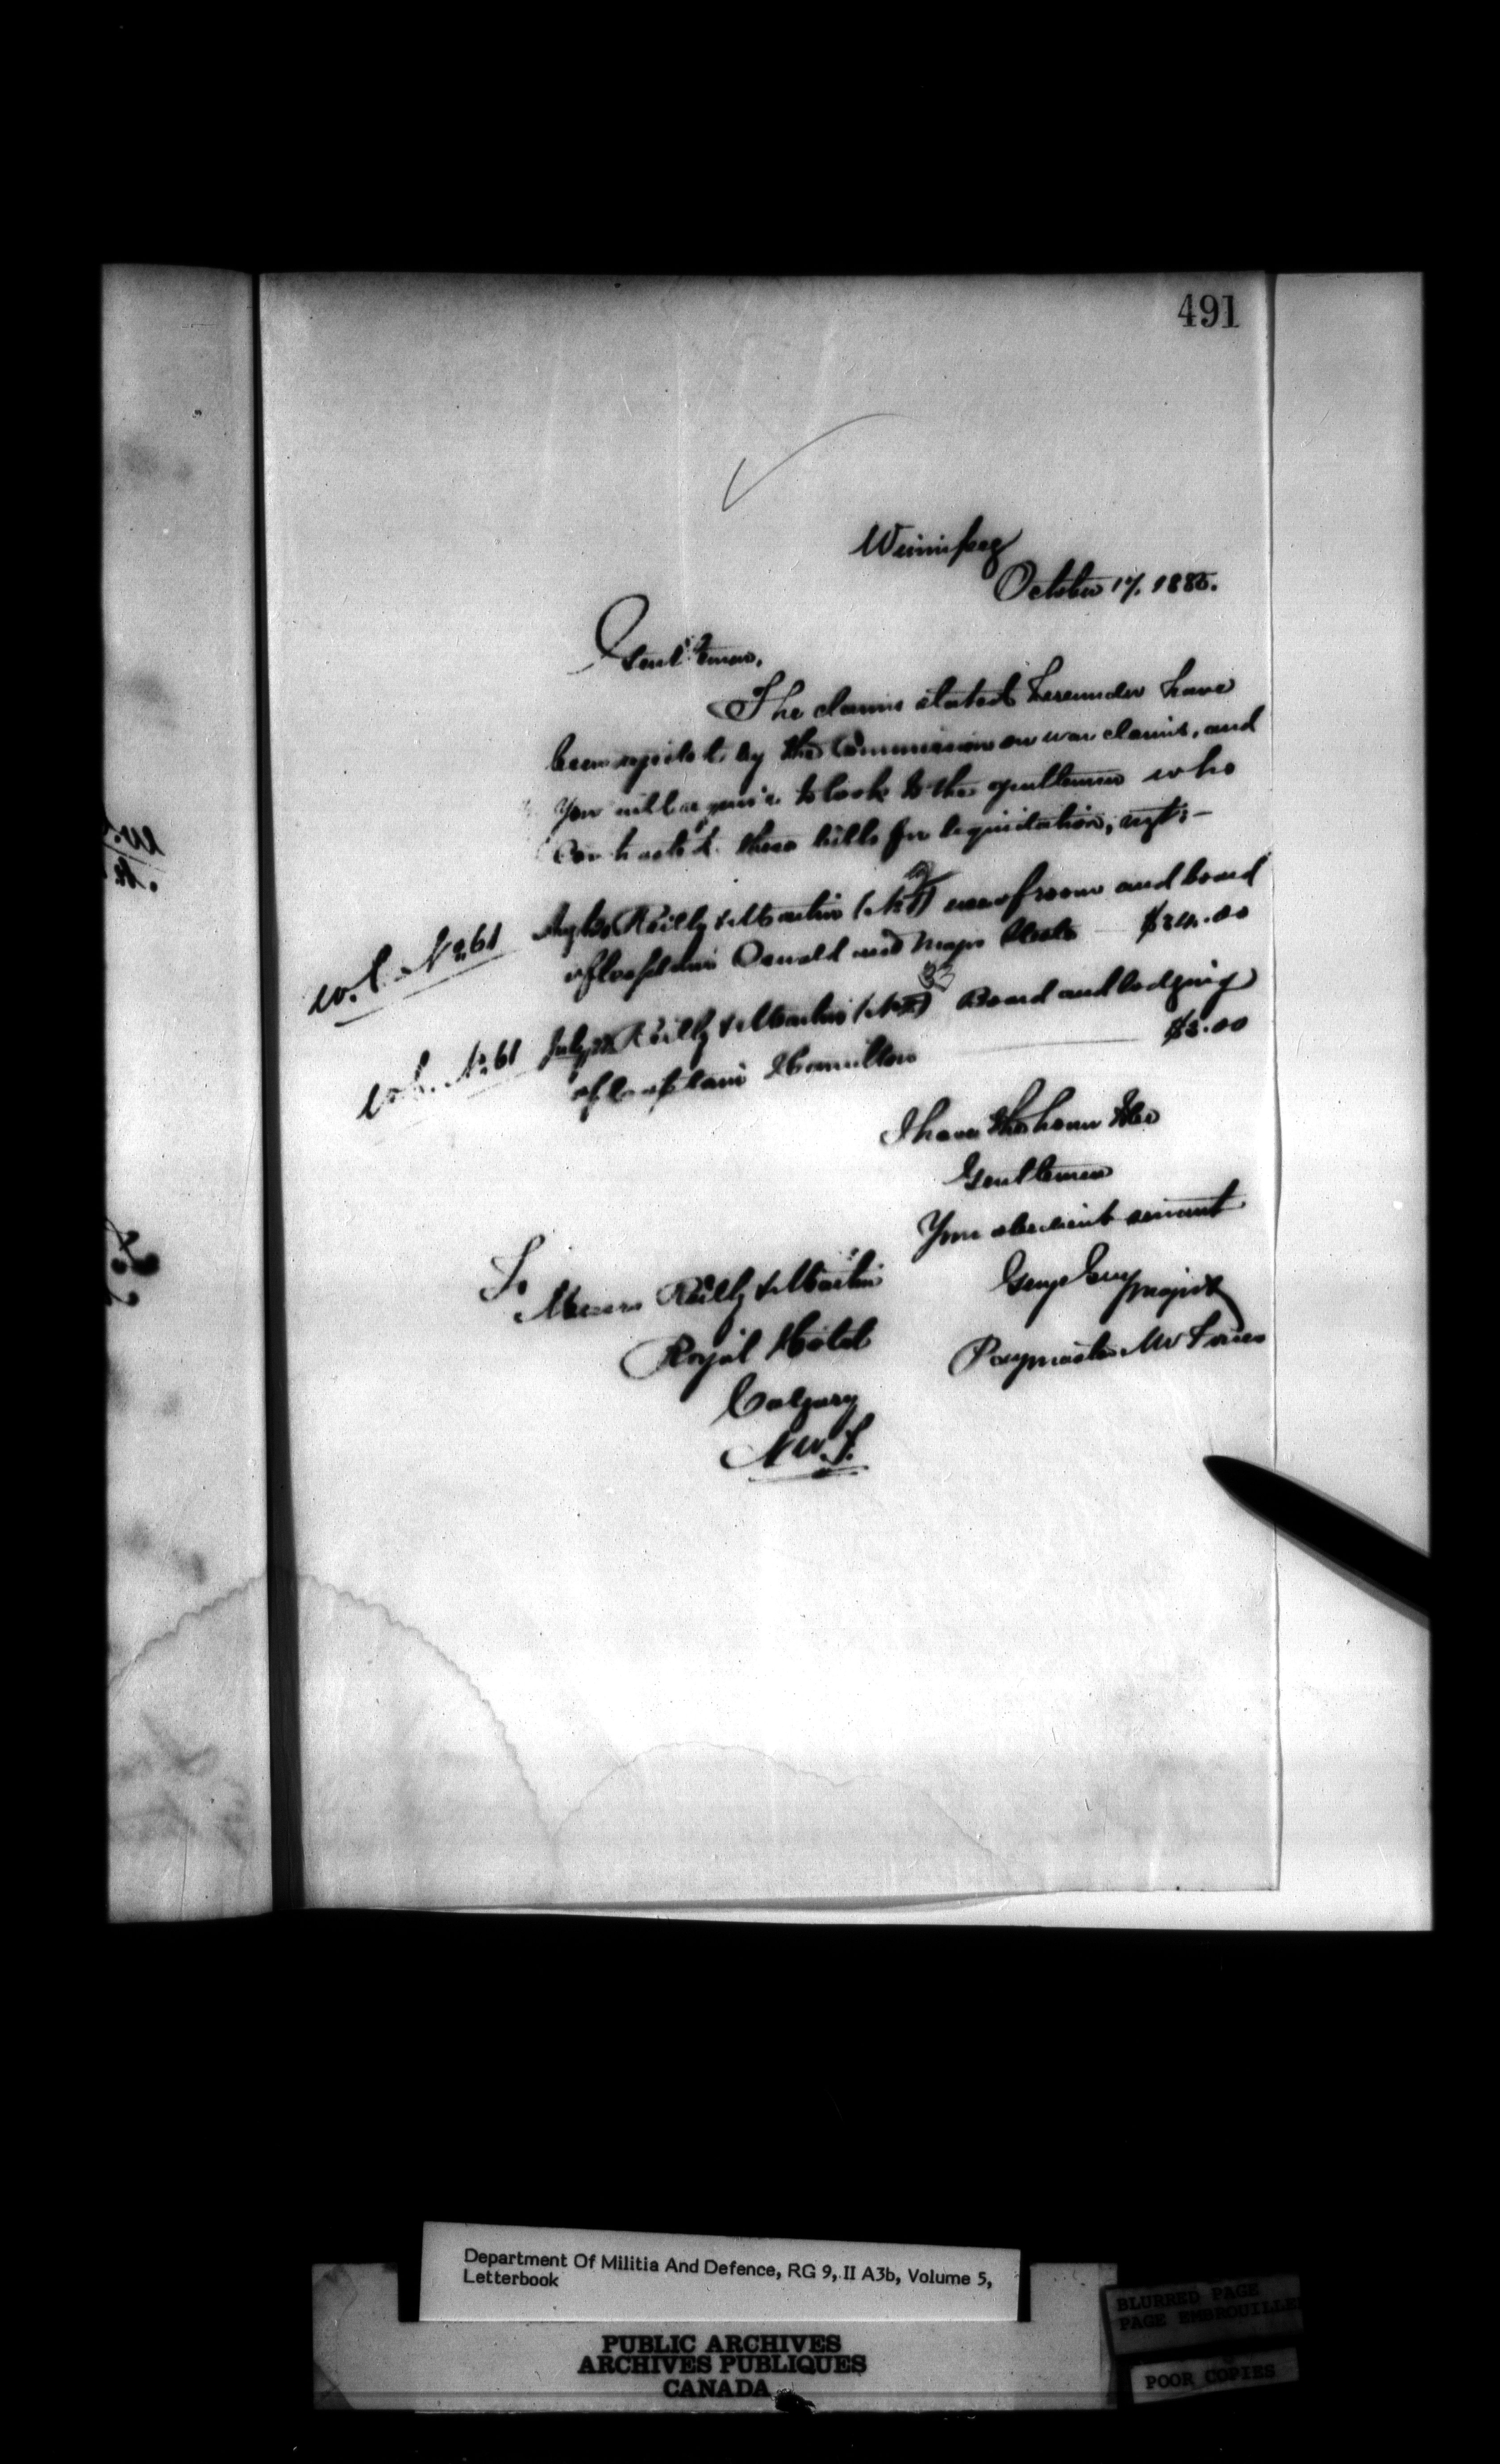 491
Winnipeg
October 17. 1885.
Gentlemen,
The claims stated hereunder have
been rejected by the Commission on war claims, and
You will require to look to the gentlemen who
Contracted these bills for liquidation, vizt:-
W.C. No 61 Reilly & Martin (No 1) use of room and board
of Captain Oswald and Major $24.00
W.C. No 61 July Reilly & Martin (No 2) Board and lodging
of Captain Hamilton $3.00
I have the honor to be
Gentlemen
Your obedient servant
Major
Paymaster Forces
To
Messrs Reilly & Martin
Royal Hotel
Calgary
N.W.T.
Department Of Militia And Defence, RG 9, II A3b, Volume 5,
Letterbook
PUBLIC ARCHIVES
ARCHIVES PUBLIQUES
CANADA
BLURRED PAGE
PAGE EMBROUILLE
POOR COPIES